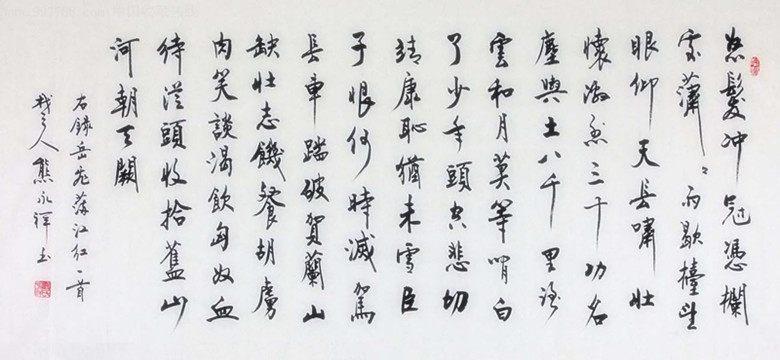 怒髮冲冠憑欄
處瀟瀟雨歇擡望
眼仰天長嘯壯
懷激烈三十功名
塵與土八千里路
雲和月莫等閒白
了少年頭空悲切
靖康恥猶未雪臣
子恨何時滅駕
長車踏破賀蘭山
缺壯志饑餐胡虜
肉笑談渴飲匈奴血
待從頭收拾舊山
河朝天闕
右錄岳飛滿江紅一首
人熊永祥